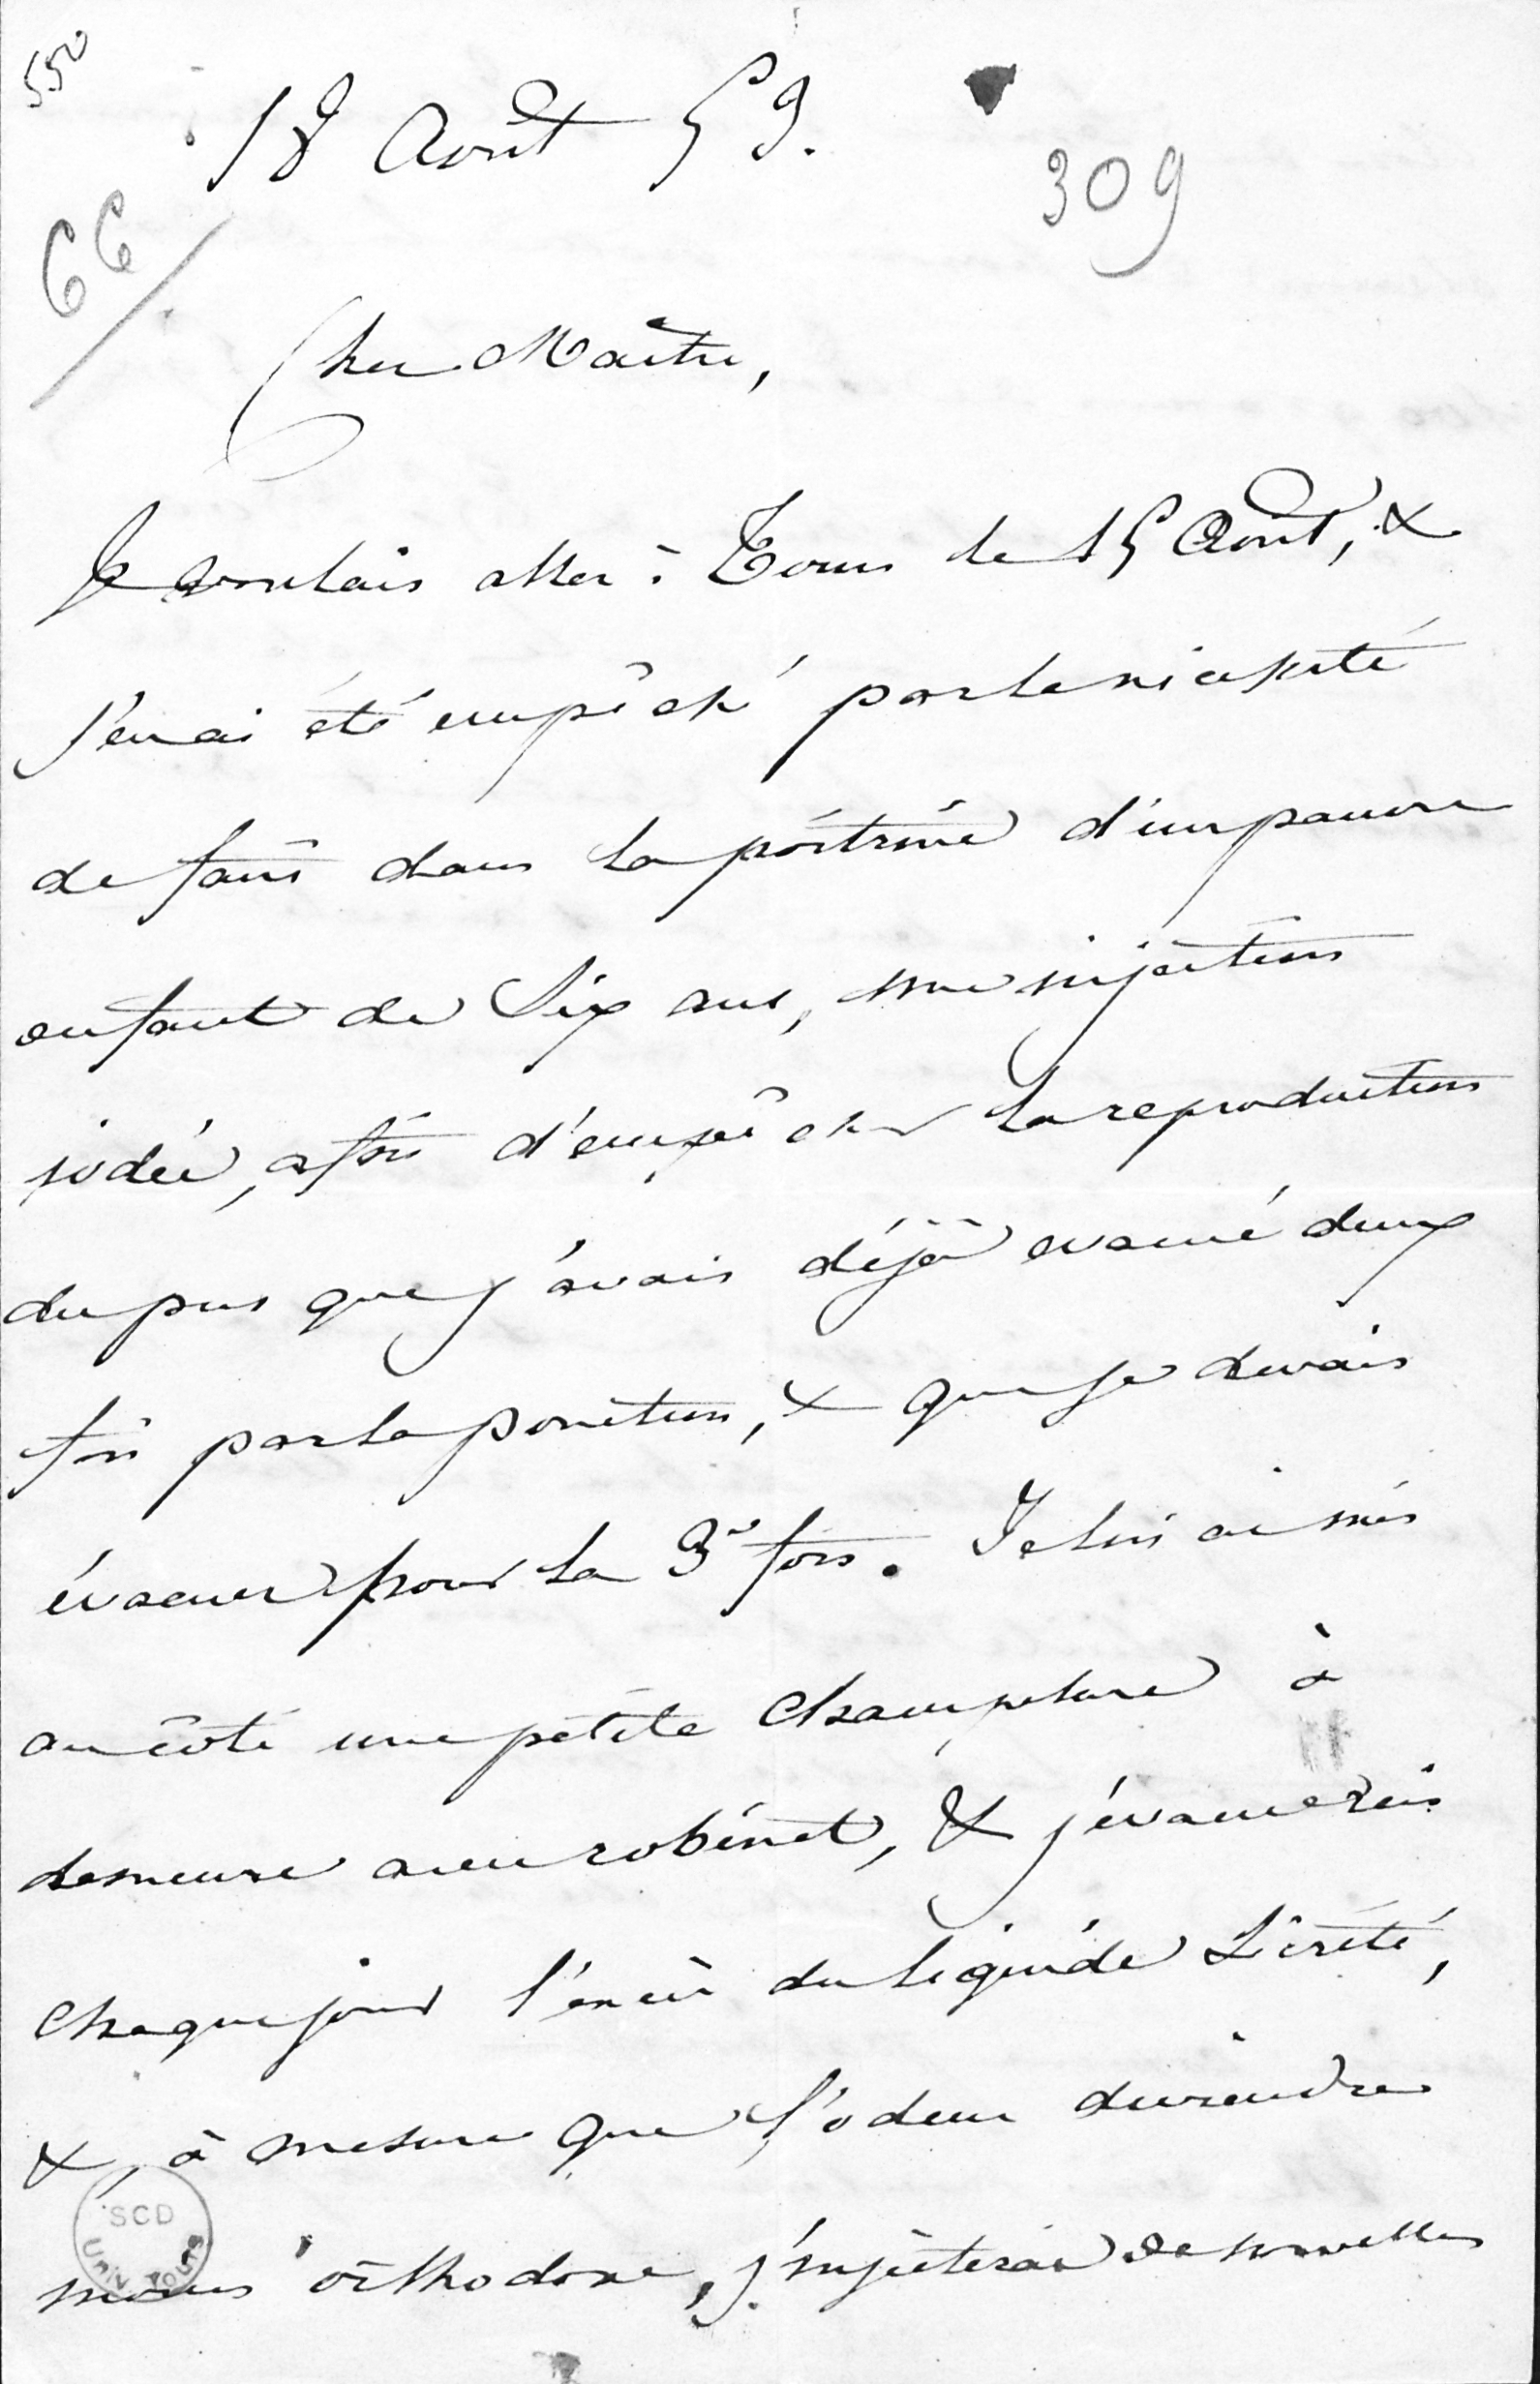 550
18 Août 59.
309
66
Cher Maître,
Je voulais aller à Tours le 15 Août, &
j'en ai été empêché par la nécessité
de faire dans la poitrine d'un pauvre
enfant de Six ans, une injection
iodée, afin d'empêcher la reproduction
du pus que j'avais déjà évacué deux
fois par la ponction, & que je devais
évacuer pour la 3e fois. Je lui ai mis
au côté une petite chanterelle à
demeure avec robinet, & j'évacuerai
chaque jour l'excès du liquide sécrété,
&, à mesure que l'odeur deviendra
moins orthodoxe, j'injecterai de nouvelles
SCD
UNIV TOURS